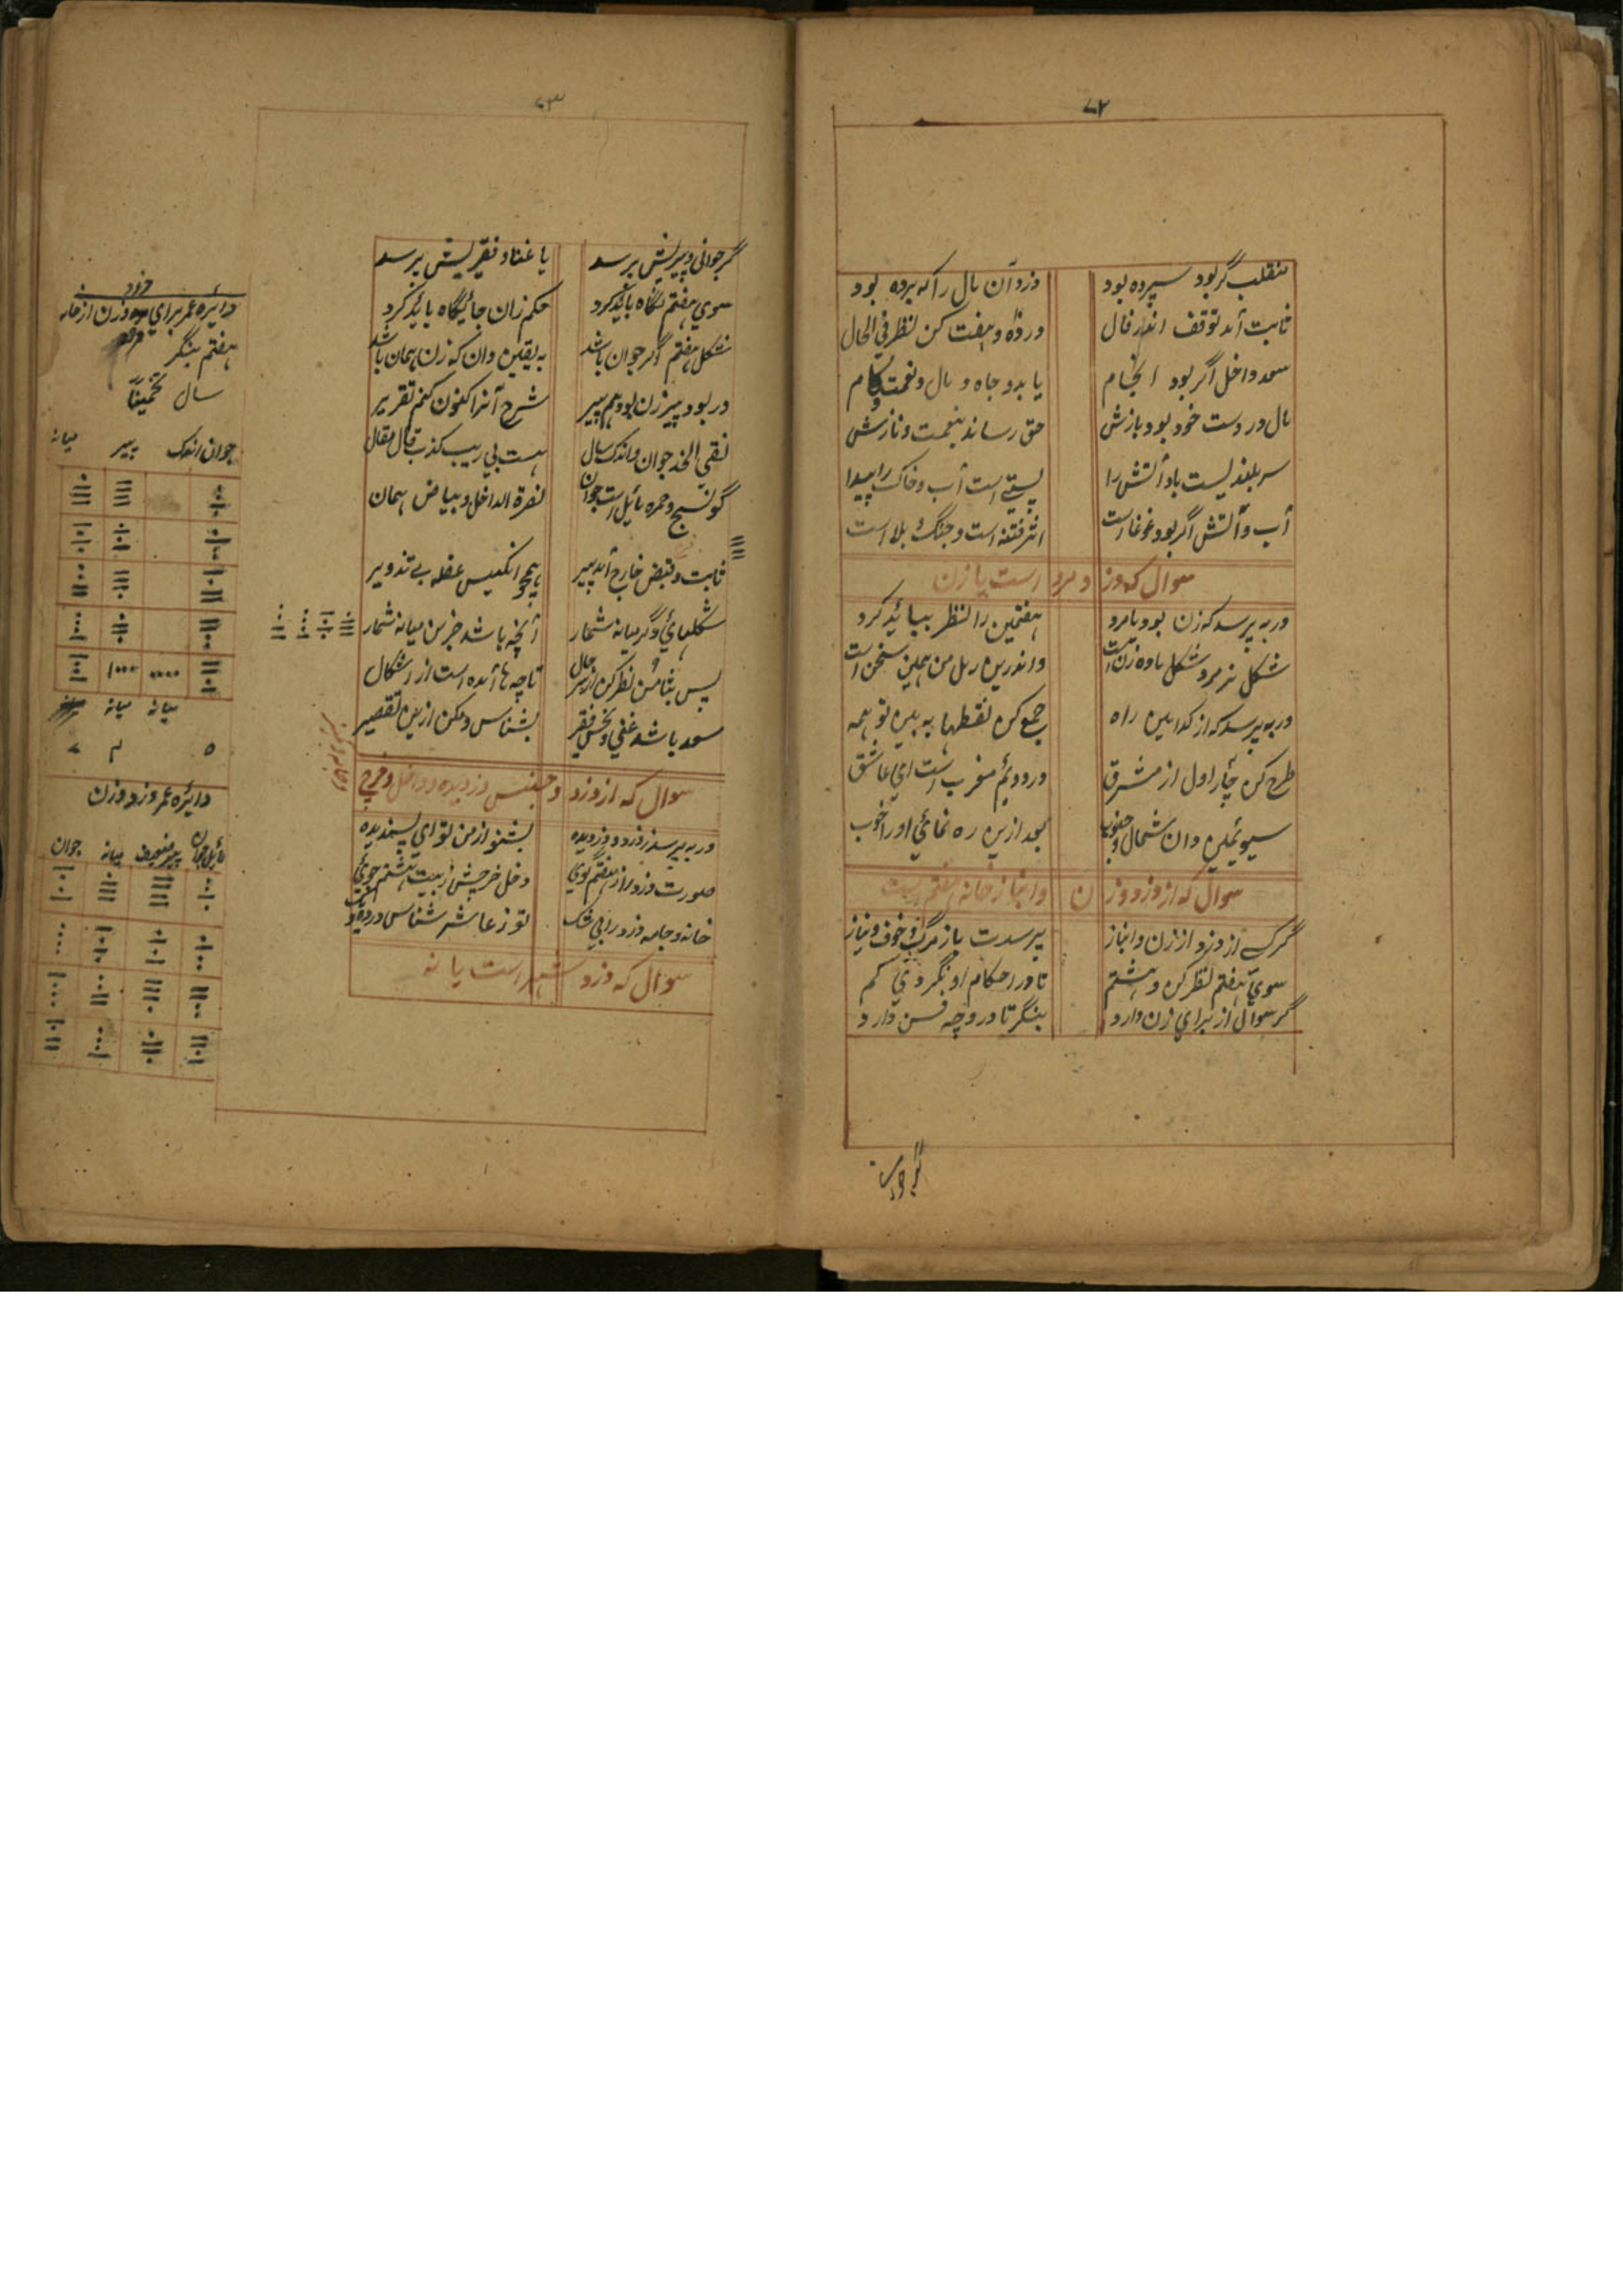 ۷۲
منقلب گر بود سپرده بود دزد آن مال را که برده بود
ثابت آمد توقف اندر فال در ده و هفت کن نظر فی الحال
سعد داخل اگر بود انجام یابد و جاه و مال و نعمت کام
مال در دست خود بود بازش حق رساند بنعمت و نازش
سر بلندیست باد آتش را پستی است آب و خاک را پیدا
آب و آتش اگر بود غوغا است اثر فتنه است و جنگ بلا است
سوال که دزد مرد است یا زن
ور به پرسد که زن بود یا مرد هفتمین را نظر ببائید کرد
شکل نر مرد شکل ماده زن است واندرین رمل من همین سخن است
ور به پرسد که از کدامین راه جمع کن نقطها به بین تو همه
طرح کن چار اول از مشرق در دویم مغرب است ای عاشق
سیوئمین دان شمال و جنوب بعد ازین ره نمائی او را خوب
سوال که از دزد و زن و انباز خانه هفتم است
گر کسی از دزد و از زن و انباز پرسدت باز مرگ و خوف و نیاز
سوی هفتم نظر کن و هشتم تا در احکام او نگردی کم
گر سوال از برای زن دارد بنگر تا در و چه فن دارد
۷۳
گر جوانی و پیریش پرسد یا غنا و فقریش پرسد
سوی هفتم نگاه بائید کرد حکم زان جائیگاه بائید کرد
شکل هفتم اگر جوان باشد به یقین دان که زن همان باشد
در بود پیر زن بود هم پیر شرح آنرا کنون کنم تقریر
نقی الخد جوان و اندک سال هست بی ریب کذب قال مقال
گوسج و حمره مائل است جوان نصرة الداخل و بیاض همان
ثابت و قبض خارج آمد پیر همچو انکیس عقله بی تدویر
شکلهائی دگر میانه شمار آنچه باشد جزین میانه شمار
پس بثامن نظر کن از سر حال تا چها آمده است از اشکال
سعد باشد غنی و نحس فقیر بشناس و مکن ازین تقصیر
سوال که از دزد و جنس دزدیده و داخل و خرج
ور به پرسد ز دزد و دزدیده بشنو از من تو ای پسندیده
صورت دزد را ز هفتم گوی دخل خرجش ز بیت هشتم جوی
خانه و جامه دزد را بی شک تو ز عاشر شناس
سوال که دزد شهر است یا نه
دایره عمر برای دزد و زن از خانه
هفتم بنگر
سال تخمیناً
جوان اندک پیر میانه
میانه میانه
دایره عمر دزد و زن
پیر ضعیف میانه جوان